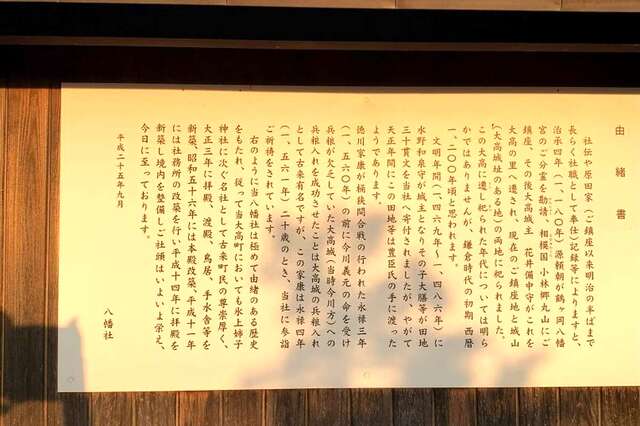 由緒書
社伝や原田家（ご鎮座以来明治の半ばまで
長らく社職として奉仕）記録等によりますと、
治承四年（一、一八〇年）源頼朝が鶴ヶ岡八幡
宮のご分霊を勧請、相模国 小林郷丸山にご
鎮座、その後大高城主 花井備中守がこれを
大高の里へ遷され、現在のご鎮座地と城山
（大高城址のある地）の両地に祀られました。
この大高に遷し祀られた年代については明ら
かではありませんが、鎌倉時代の初期 西暦
一、二〇〇年頃と思われます。
文明年間（一、四六九年～一、四八六年）に
水野和泉守が城主となりその子大膳等が田地
三十貫文を当社へ寄付されましたが、やがて
天正年間にこの田地等は豊臣氏の手に渡った
ようであります。
徳川家康が桶狭間合戦の行われた永禄三年
（一、五六〇年）の前に今川義元の命を受け
兵糧が欠乏していた大高城（当時今川方）への
兵糧入れを成功させたことは大高城の兵糧入れ
として古来有名ですが、この家康は永禄四年
（一、五六一年）二十歳のとき、当社に参詣
ご祈祷をされています。
右のように当八幡社は極めて由緒のある歴史
をもたれ、従って当大高町においても氷上姉子
神社に次ぐ名社として古来町民の尊崇厚く、
大正三年に拝殿、渡殿、鳥居、手水舎等を
新築、昭和五十六年には本殿改築、平成十一年
には社務所の改築を行い平成十四年に拝殿を
新築し境内を整備しご社頭はいよいよ栄え、
今日に至っております。
平成二十五年九月
八幡社